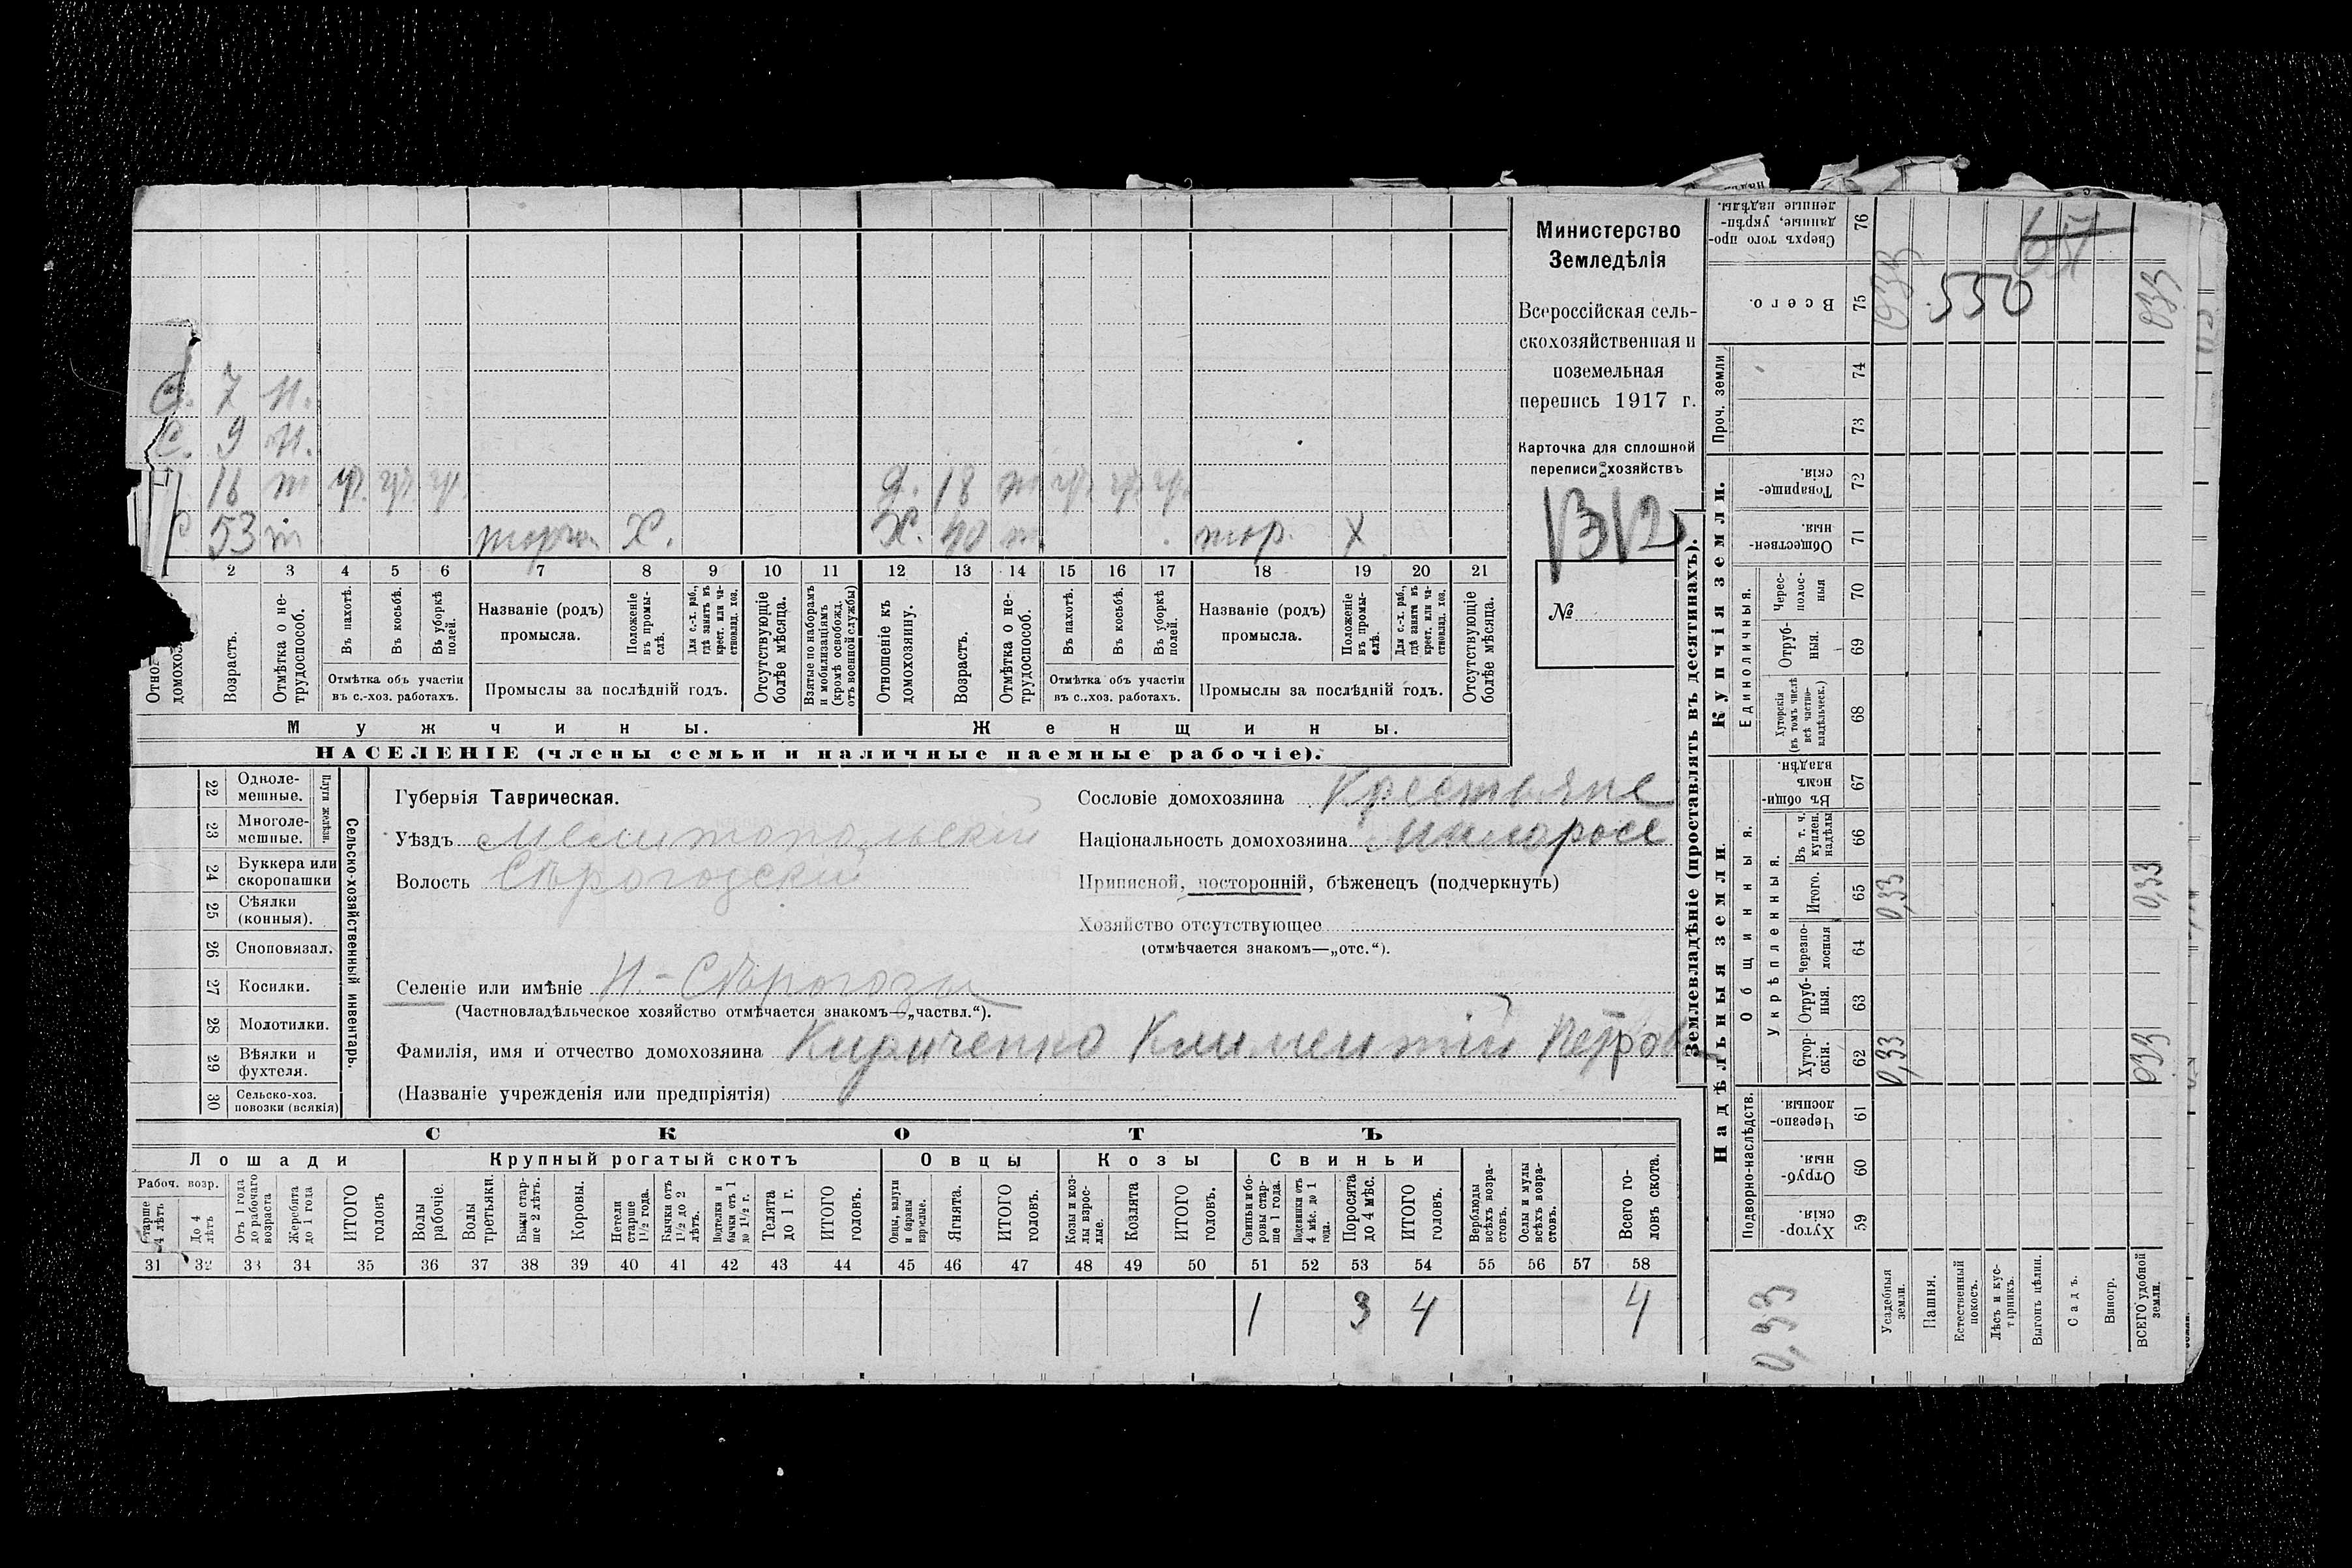 Министерство
Земледѣлія
Всероссійская сель-
скохозяйственная и
поземельная
перепись 1917 г.
Карточка для сплошной
переписи хозяйствъ
№
С. 7 н.
С. 9 н.
16 т
д. 18
53 т Х. Х. 40 т тор. Х
2 3 4 5 6 7 8 9 10 11 12 13 14 15 16 17 18 19 20 21
домохоз
Возрастъ.
Отмѣтка о не-
трудоспособ.
Въ пахотѣ.
Въ косьбѣ.
Въ уборкѣ
полей.
Отмѣтка объ участіи
въ с.-хоз. работахъ.
Названіе (родъ)
промысла.
Положеніе
въ промы-
слѣ.
Для с.-х. раб.,
гдѣ занятъ въ
крест. или ча-
стновлад. хоз.
Промыслы за послѣдній годъ.
Отсутствующіе
болѣе мѣсяца.
Взятые по наборамъ
и мобилизаціямъ
(кромѣ освобожд.
отъ военной службы)
Отношеніе къ
домохозяину.
Возрастъ.
Отмѣтка о не-
трудоспособ.
Въ пахотѣ.
Въ косьбѣ.
Въ уборкѣ
полей.
Отмѣтка объ участіи
въ с..хоз. работахъ.
Названіе (родъ)
промысла.
Положеніе
въ промы-
слѣ.
Для с.-х. раб.,
гдѣ занята въ
крест. или ча-
стновлад. хоз.
Промыслы за послѣдній годъ.
Отсутствующіе
болѣе мѣсяца.
Мужчины.
Женщины.
НАСЕЛЕНІЕ (члены семьи и наличные наемные рабочіе).
22 Одноле-
мешные.
23 Многоле-
мешные.
Плуги желѣзн.
24 Буккера или
скоропашки
25 Сѣялки
(конныя).
26 Сноповязал.
27 Косилки.
28 Молотилки.
29 Вѣялки и
фухтеля.
30 Сельско-хоз.
повозки (всякія)
Сельско-хозяйственный инвентарь.
Губернія Таврическая.
Уѣздъ Мелитопольскій
Волость Сѣрогозскій
Селеніе или имѣніе Н.-Сѣрогозы
(Частновладѣльческое хозяйство отмѣчается знакомъ—„частвл.“).
Фамилія, имя и отчество домохозяина Кириченко Климентій Петров
(Названіе учрежденія или предпріятія)
Сословіе домохозяина Крестьяне
Національность домохозяина малоросс
Приписной, посторонній, бѣженецъ (подчеркнуть)
Хозяйство отсутствующее
(отмѣчается знакомъ—„отс.“).
СКОТЪ
Лошади Крупный рогатый скотъ Овцы Козы Свиньи
Рабоч. возр.
Старше
4 лѣтъ
До 4
лѣтъ
Отъ 1 года
до рабочаго
возраста
Жеребята
до 1 года
ИТОГО
головъ
Волы
рабочіе.
Волы
третьяки.
Быки стар-
ше 2 лѣтъ.
Коровы.
Нетели
старше
1½ года.
Бычки отъ
1½ до 2
лѣтъ.
Подтелки и
бычки отъ 1
до 1½ г.
Телята
до 1 г.
ИТОГО
головъ.
Овцы, валухи
и бараны
взрослые.
Ягнята.
ИТОГО
головъ.
Козы и коз-
лы взрос-
лые.
Козлята
ИТОГО
головъ.
Свиньи и бо-
ровы стар-
ше 1 года.
Подсвинки отъ
4 мѣс. до 1
года.
Поросята
до 4 мѣс.
ИТОГО
головъ.
Верблюды
всѣхъ возра-
стовъ.
Ослы и мулы
всѣхъ возра-
стовъ.
Всего го-
ловъ скота.
31 32 33 34 35 36 37 38 39 40 41 42 43 44 45 46 47 48 49 50 51 52 53 54 55 56 57 58
1 3 4 4
Землевладѣніе (проставлять въ десятинахъ).
Надѣльныя земли.
Купчія земли.
Проч. земли
Подворно-наслѣдств.
Общинныя.
Укрѣпленныя.
Единоличныя.
Сверхъ того про-
данные, укрѣп-
ленные надѣлы.
76
Всего.
75
74
73
Товарище-
скія.
72
Обществен-
ныя.
71
Черес-
полос-
ныя
70
Отруб-
ныя.
69
Хуторскія
(въ томъ числѣ
всѣ частно-
владѣльческ.)
68
Въ общин-
номъ
владѣн.
67
Въ т. ч.
куплен.
надѣлы
66
Итого.
65
Черезпо-
лосныя
64
Отруб-
ныя.
63
Хутор-
скія.
62
Черезпо-
лосныя.
61
Отруб-
ныя.
60
Хутор-
скія.
59
Усадебныя
земли.
Пашня.
Естественный
покосъ.
Лѣсъ и кус-
тарникъ.
Выгонъ цѣлин.
Садъ.
Виногр.
ВСЕГО удобной
земли.
550
033
0,33
0,33
0,33
033
033
0,33